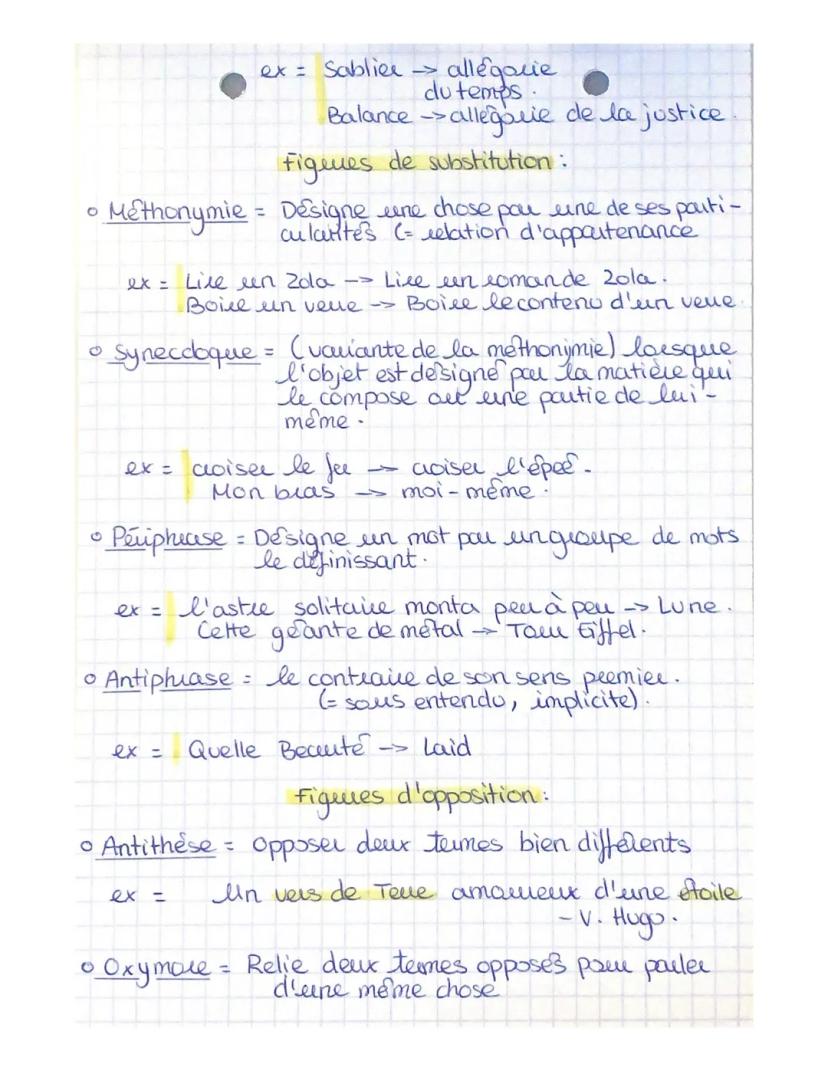 ex = Sablier -> allégorie
du temps.
Balance -> allégorie de la justice.
Figures de substitution :
Méthonymie = Désigne une chose par une de ses parti-
cularités (= relation d'appartenance
ex = Lire un Zola -> Lire un roman de Zola.
Boire un verre -> Boire le contenu d'un verre.
Synecdoque = (variante de la méthonimie) lorsque
l'objet est désigné par la matière qui
le compose out une partie de lui-
même.
ex = croiser le fer -> croiser l'épée.
Mon bras -> moi-même.
Périphrase = Désigne un mot par un groupe de mots
le définissant.
ex = l'astre solitaire monta peu à peu -> Lune.
Cette géante de métal -> Tour Eiffel.
Antiphrase = le contraire de son sens premier.
(= sous entendu, implicite).
ex = Quelle Beauté -> Laid
Figures d'opposition :
Antithése = Opposer deux termes bien différents
ex = Un vers de Terre amoureux d'une étoile
- V. Hugo.
Oxymore = Relie deux termes opposés pour parler
d'une même chose